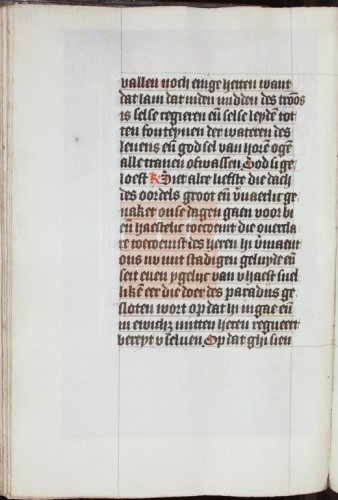 vallen noch enige hetten want
dat lam dat inden midden des troōs
is selse regieren eñ selse leydē tot
ten fonteynen der wateren des
leuens eñ god sel van horē ogē
alle tranen ofwassen. God si ge
loeft R Hier alre liefste die dach
des oordels groot eñ v̄uaerlic ge
naket onse dagen gaen voor bi
eñ haestelic toecoemt die
toecoemst des heren hi v̄maent
ons mit stadigen geluyde eñ
seit euen ygelijc van v haest snel
likē eer die doer des paradijs ge
sloten wort op dat ghi in gae eñ
in ewichz mitten heren regneert
bereyt v seluen. Op dat ghi sien